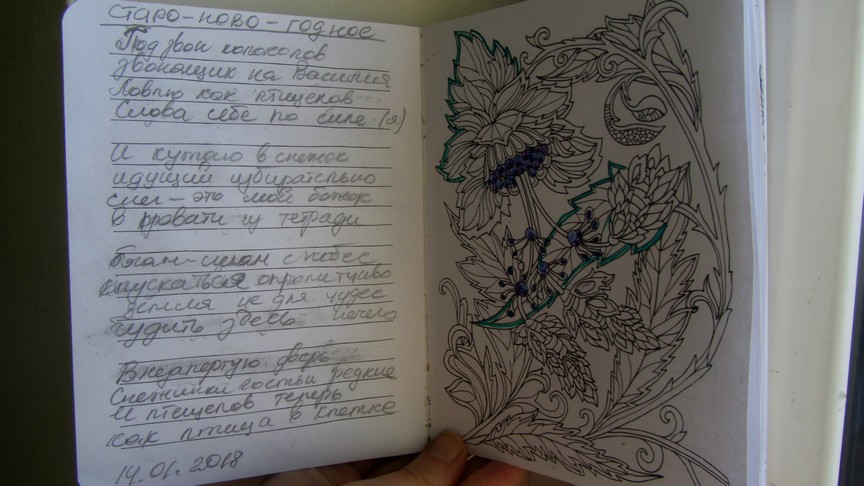 СТАРО-НОВО-ГОДНОЕ
Под звон колоколов
звонящих на Василия
Ловлю как птицелов...
Слова себе по силе (я)
И кутаю в снежок
идущий избирательно
снег-это мой божок
В кровати из тетради
с небес
спускаться опрометчиво
земля не для чудес
Чудить здесь нечего
В незапертую дверь
Снежинки гостьи редкие
И птицелов теперь
как птица в клетке
14.01.2018